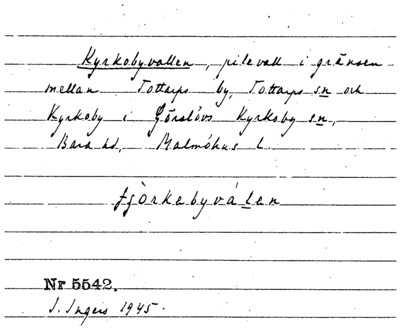 Kyrkobyvallen, pilevall i gränsen
mellan Tottarps by, Tottarps sn och
Kyrkoby i Görslövs Kyrkoby sn,
Bara hd, Malmöhus l.
tjörkebyválen
Nr 5542.
I. Ingers 1945.